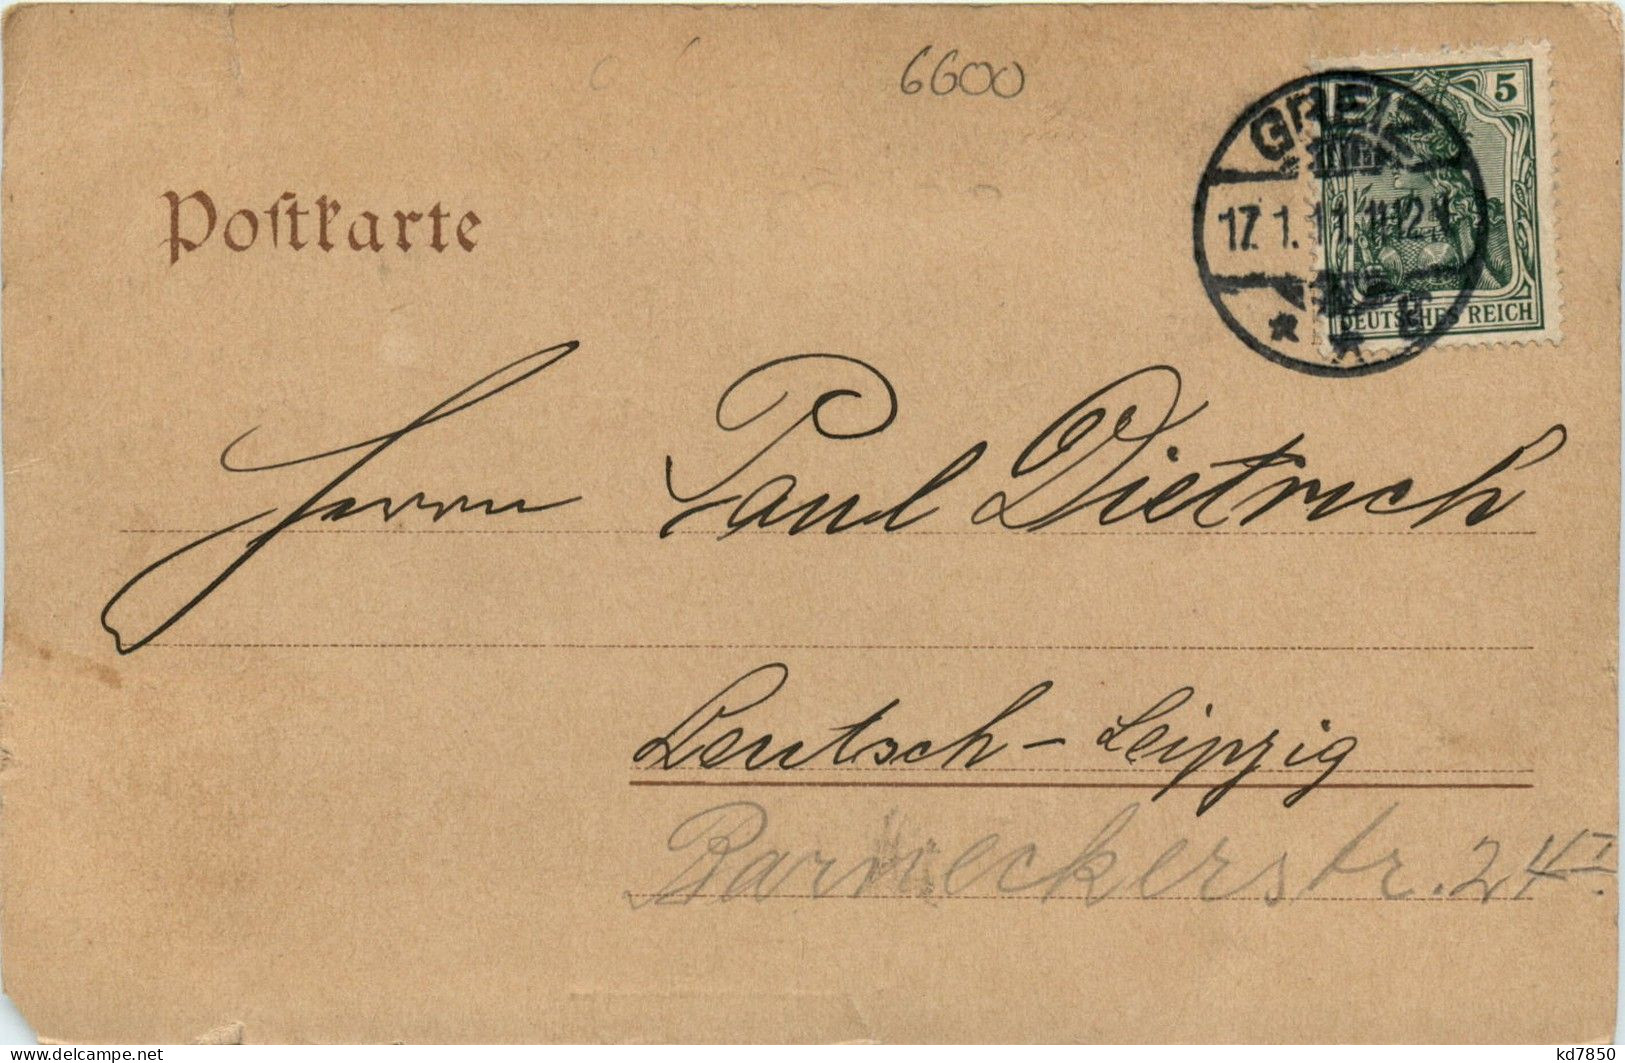 6600
5
GREIZ
17. 1. 11. 11-12 V
* *
DEUTSCHES REICH
Poſtkarte
Herrn Paul Dietrich
Leutsch-Leipzig
Barneckerstr. 24 I.
delcampe.net
kd7850